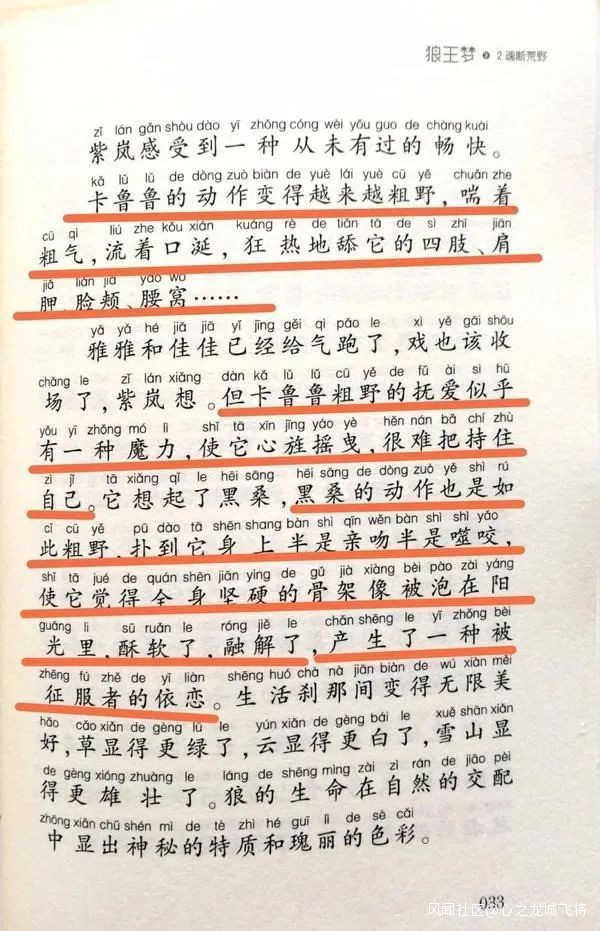 狼王梦 2 魂断荒野
zǐ lán gǎn shòu dào yī zhǒng cóng wèi yǒu guo de chàng kuài
紫岚感受到一种从未有过的畅快。
kǎ lǔ lǔ de dòng zuò biàn de yuè lái yuè cū yě chuǎn zhe
卡鲁鲁的动作变得越来越粗野，喘着
cū qì liú zhe kǒu xián kuáng rè de tiǎn tā de sì zhī jiān
粗气，流着口涎，狂热地舔它的四肢、肩
jiǎ liǎn jiá yāo wō
胛、脸颊、腰窝……
yǎ yǎ hé jiā jiā yǐ jīng gěi qì pǎo le xì yě gāi shōu
雅雅和佳佳已经给气跑了，戏也该收
chǎng le zǐ lán xiǎng dàn kǎ lǔ lǔ cū yě de fǔ ài sì hū
场了，紫岚想。但卡鲁鲁粗野的抚爱似乎
yǒu yī zhǒng mó lì shǐ tā xīn jīng yáo yè hěn nán bǎ chí zhù
有一种魔力，使它心旌摇曳，很难把持住
zì jǐ tā xiǎng qǐ le hēi sāng hēi sāng de dòng zuò yě shì rú
自己。它想起了黑桑，黑桑的动作也是如
cǐ cū yě pū dào tā shēn shang bàn shì qīn wěn bàn shì shì yǎo
此粗野，扑到它身上半是亲吻半是噬咬，
shǐ tā jué de quán shēn jiān yìng de gǔ jià xiàng bèi pào zài yáng
使它觉得全身坚硬的骨架像被泡在阳
guāng li sū ruǎn le róng jiě le chǎn shēng le yī zhǒng bèi
光里，酥软了，融解了，产生了一种被
zhēng fú zhě de yī liàn shēng huó chà nà jiān biàn de wú xiàn měi
征服者的依恋。生活刹那间变得无限美
hǎo cǎo xiǎn de gèng lǜ le yún xiǎn de gèng bái le xuě shān xiǎn
好，草显得更绿了，云显得更白了，雪山显
de gèng xióng zhuàng le láng de shēng mìng zài zì rán de jiāo pèi
得更雄壮了。狼的生命在自然的交配
zhōng xiǎn chū shén mì de tè zhì hé guī lì de sè cǎi
中显出神秘的特质和瑰丽的色彩。
033
风闻社区@心之龙城飞将